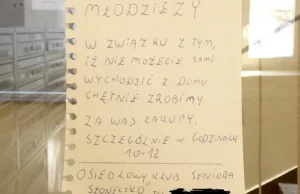 MŁODZIEŻY
W ZWIĄZKU Z TYM,
IŻ NIE MOŻECIE SAMI
WYCHODZIĆ Z DOMU
CHĘTNIE ZROBIMY
ZA WAS ZAKUPY.
SZCZEGÓLNIE W GODZINACH
10-12
OSIEDLOWY KLUB SENIORA
"SŁONECZKO"